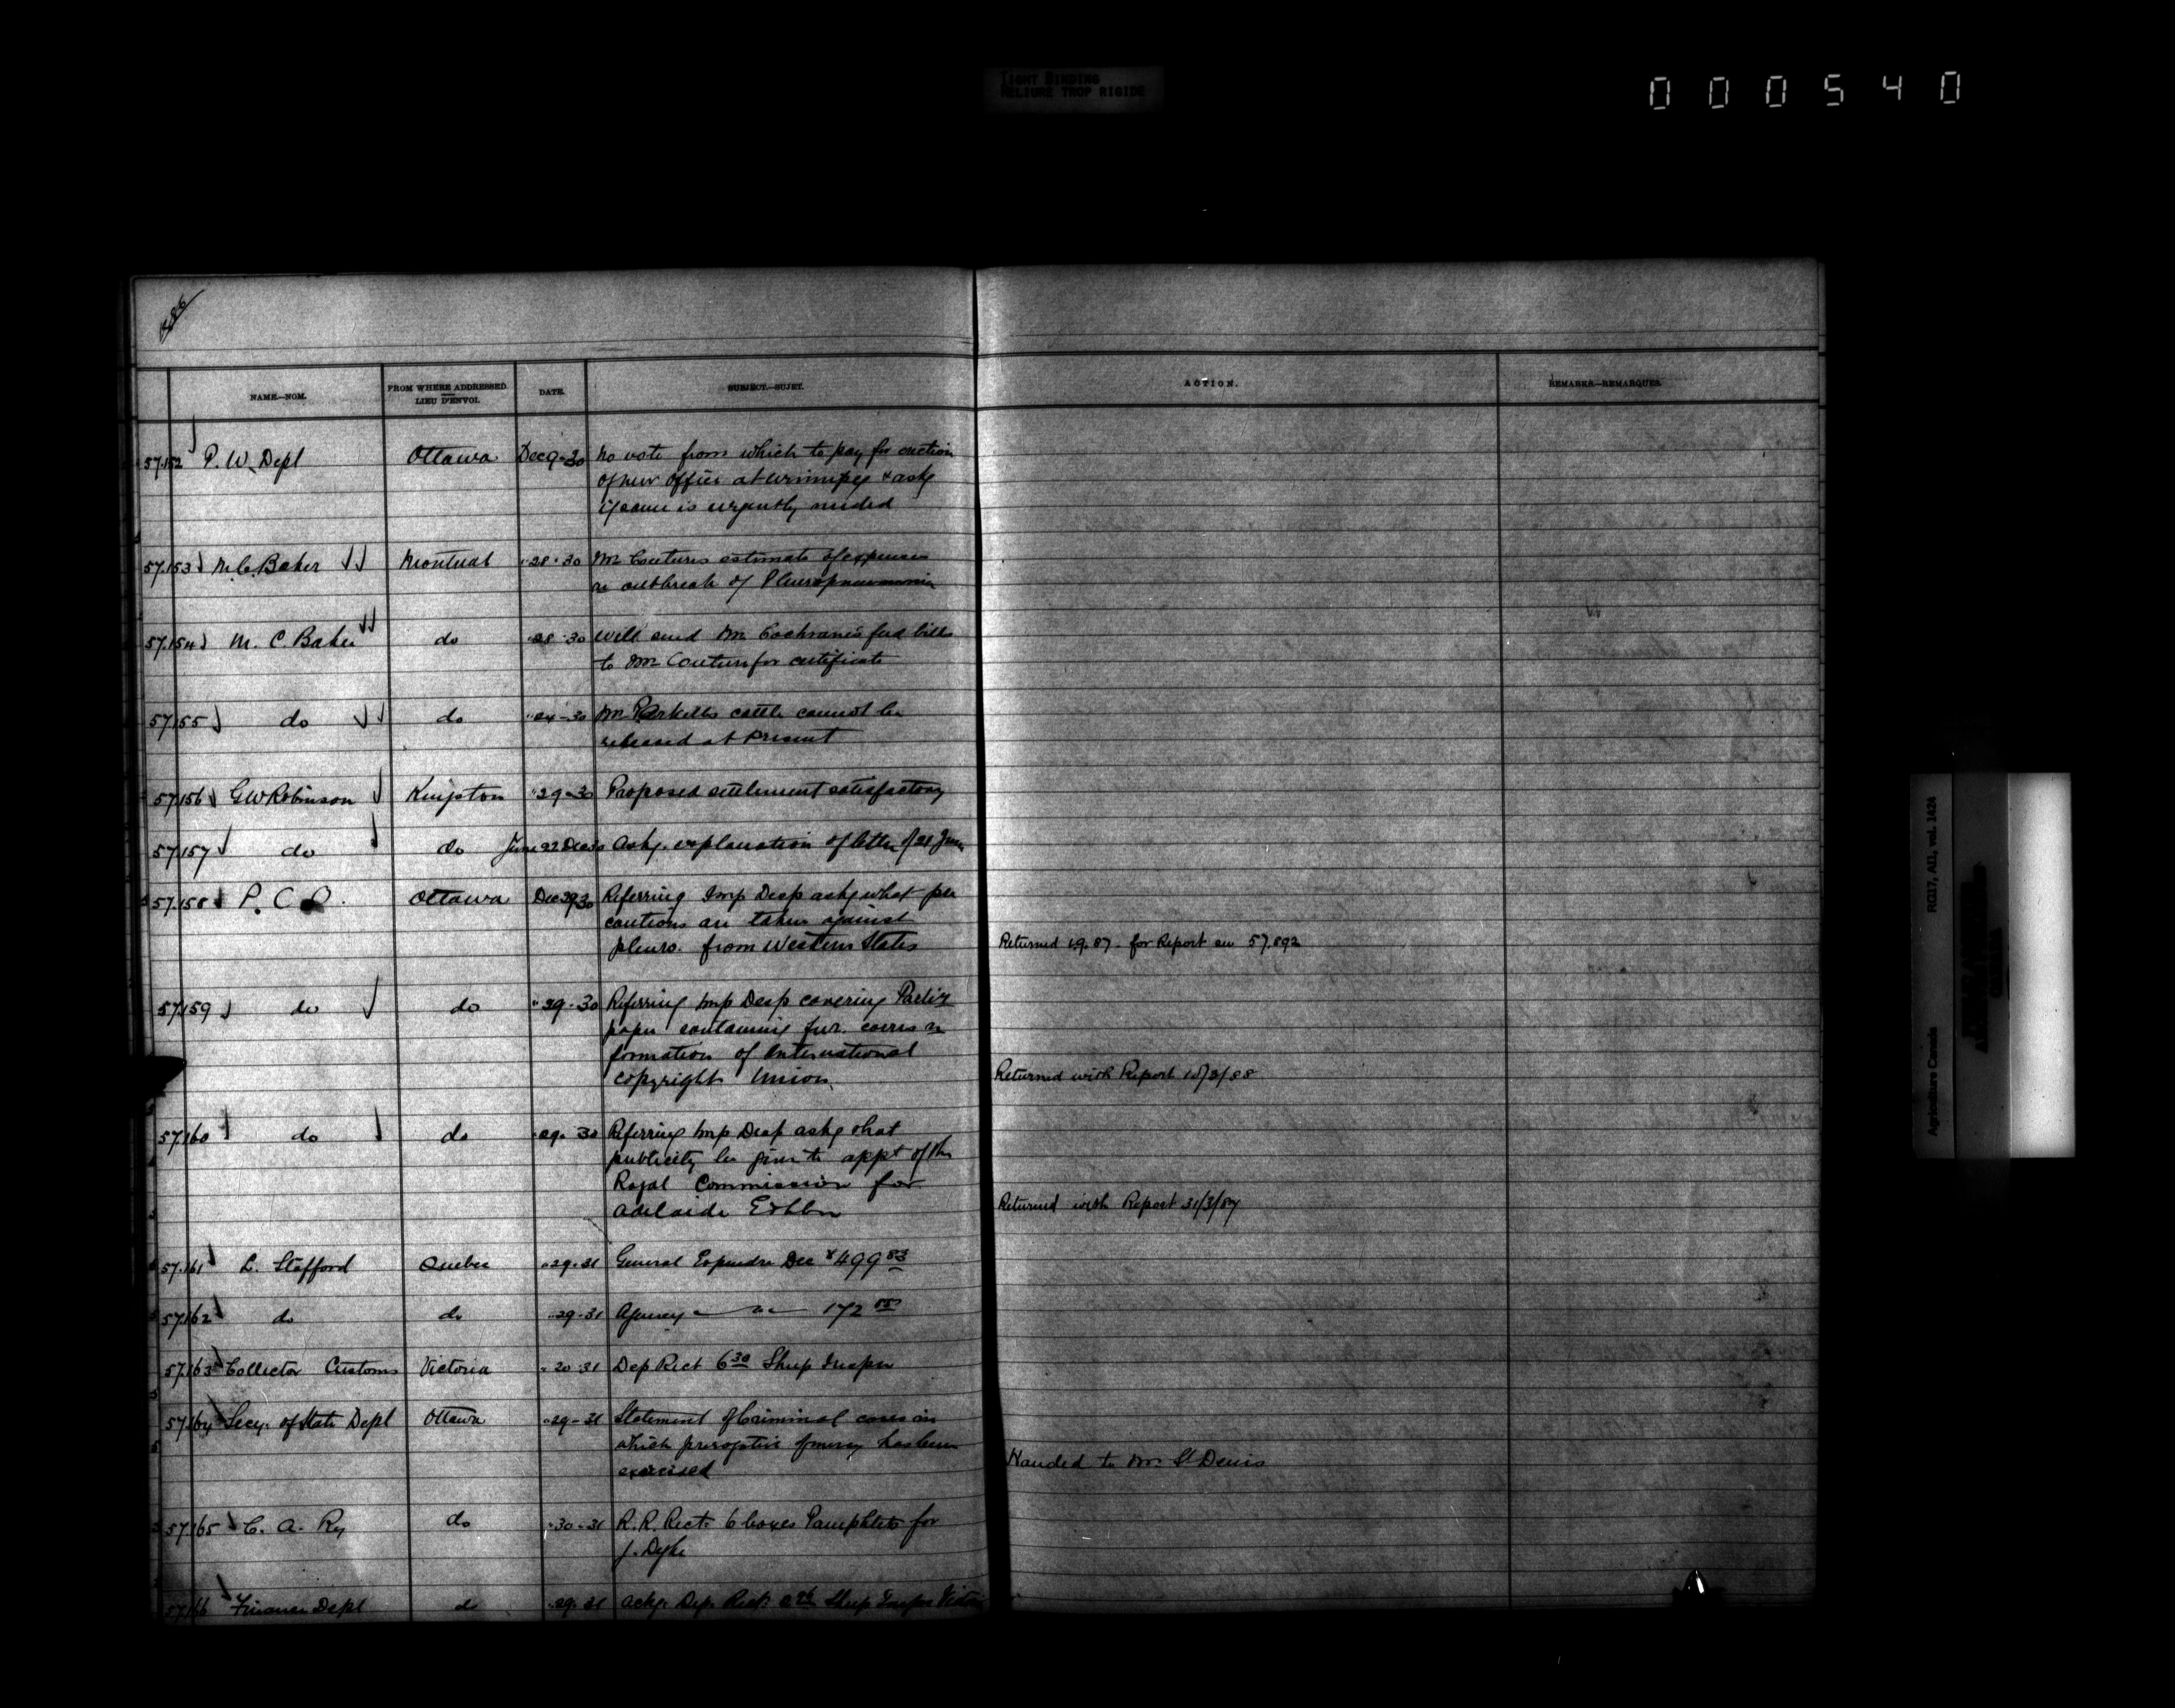 TIGHT BINDING
RELIURE TROP RIGIDE
000540
486
NAME.—NOM.
FROM WHERE ADDRESSED
LIEU D'ENVOI.
DATE.
SUBJECT.—SUJET.
ACTION.
REMARKS.—REMARQUES.
57.152 P. W. Dept Ottawa Dec 9-30 No vote from which to pay for erection
of new office at Winnipeg & asks
if same is urgently needed
57.153 M.C. Baker Montreal " 28-30 Mr Coutures estimate of expenses
re outbreak of Pleuropneumonia
57.154 M. C. Baker do " 28-30 Will send Mr Cochrane's feed bills
to Mr Couture for certificate
57.155 do do " 24-30 Mr cattle cannot be
released at present
57.156 G W Robinson Kingston " 29-30 Proposed settlement satisfactory
57.157 do do June 22 Dec 30 Asks explanation of letter of 21 June
57.158 P. C. O. Ottawa Dec 29 30 Referring Imp Desp asks what pre
cautions are taken against
pleuro. from Western States
Returned 1.9.87. for Report see 57.892
57.159 do do " 29-30 Referring Imp Desp covering Parliy
paper containing fur. corres re
formation of International
Copyright Union
Returned with Report 15/3/88
57.160 do do " 29. 30 Referring Imp Desp asks that
publicity be given to appt of the
Royal Commission for
Adelaide Exhbn
Returned with Report 31/3/87
57.161 L. Stafford Quebec " 29-31 General Expendre Dec $499 83
57.162 do do " 29-31 Agency " " 172
57.163 Collector Customs Victoria " 20 31 Dep Rect 6 30 Sheep Inspn
57.164 Secy. of State Dept Ottawa " 29-31 Statement of Criminal cases in
which prerogative of mercy has been
exercised
Handed to Mr St Denis
57.165 C. A. Ry do " 30-31 R. R. Rect. 6 boxes Pamphlets for
J. Dyke
57.166 Finance Dept do " 29. 31 Ackg. Dep. Rect. Sheep Inspn Victoria
RG17, AII, vol. 1424
Agriculture Canada